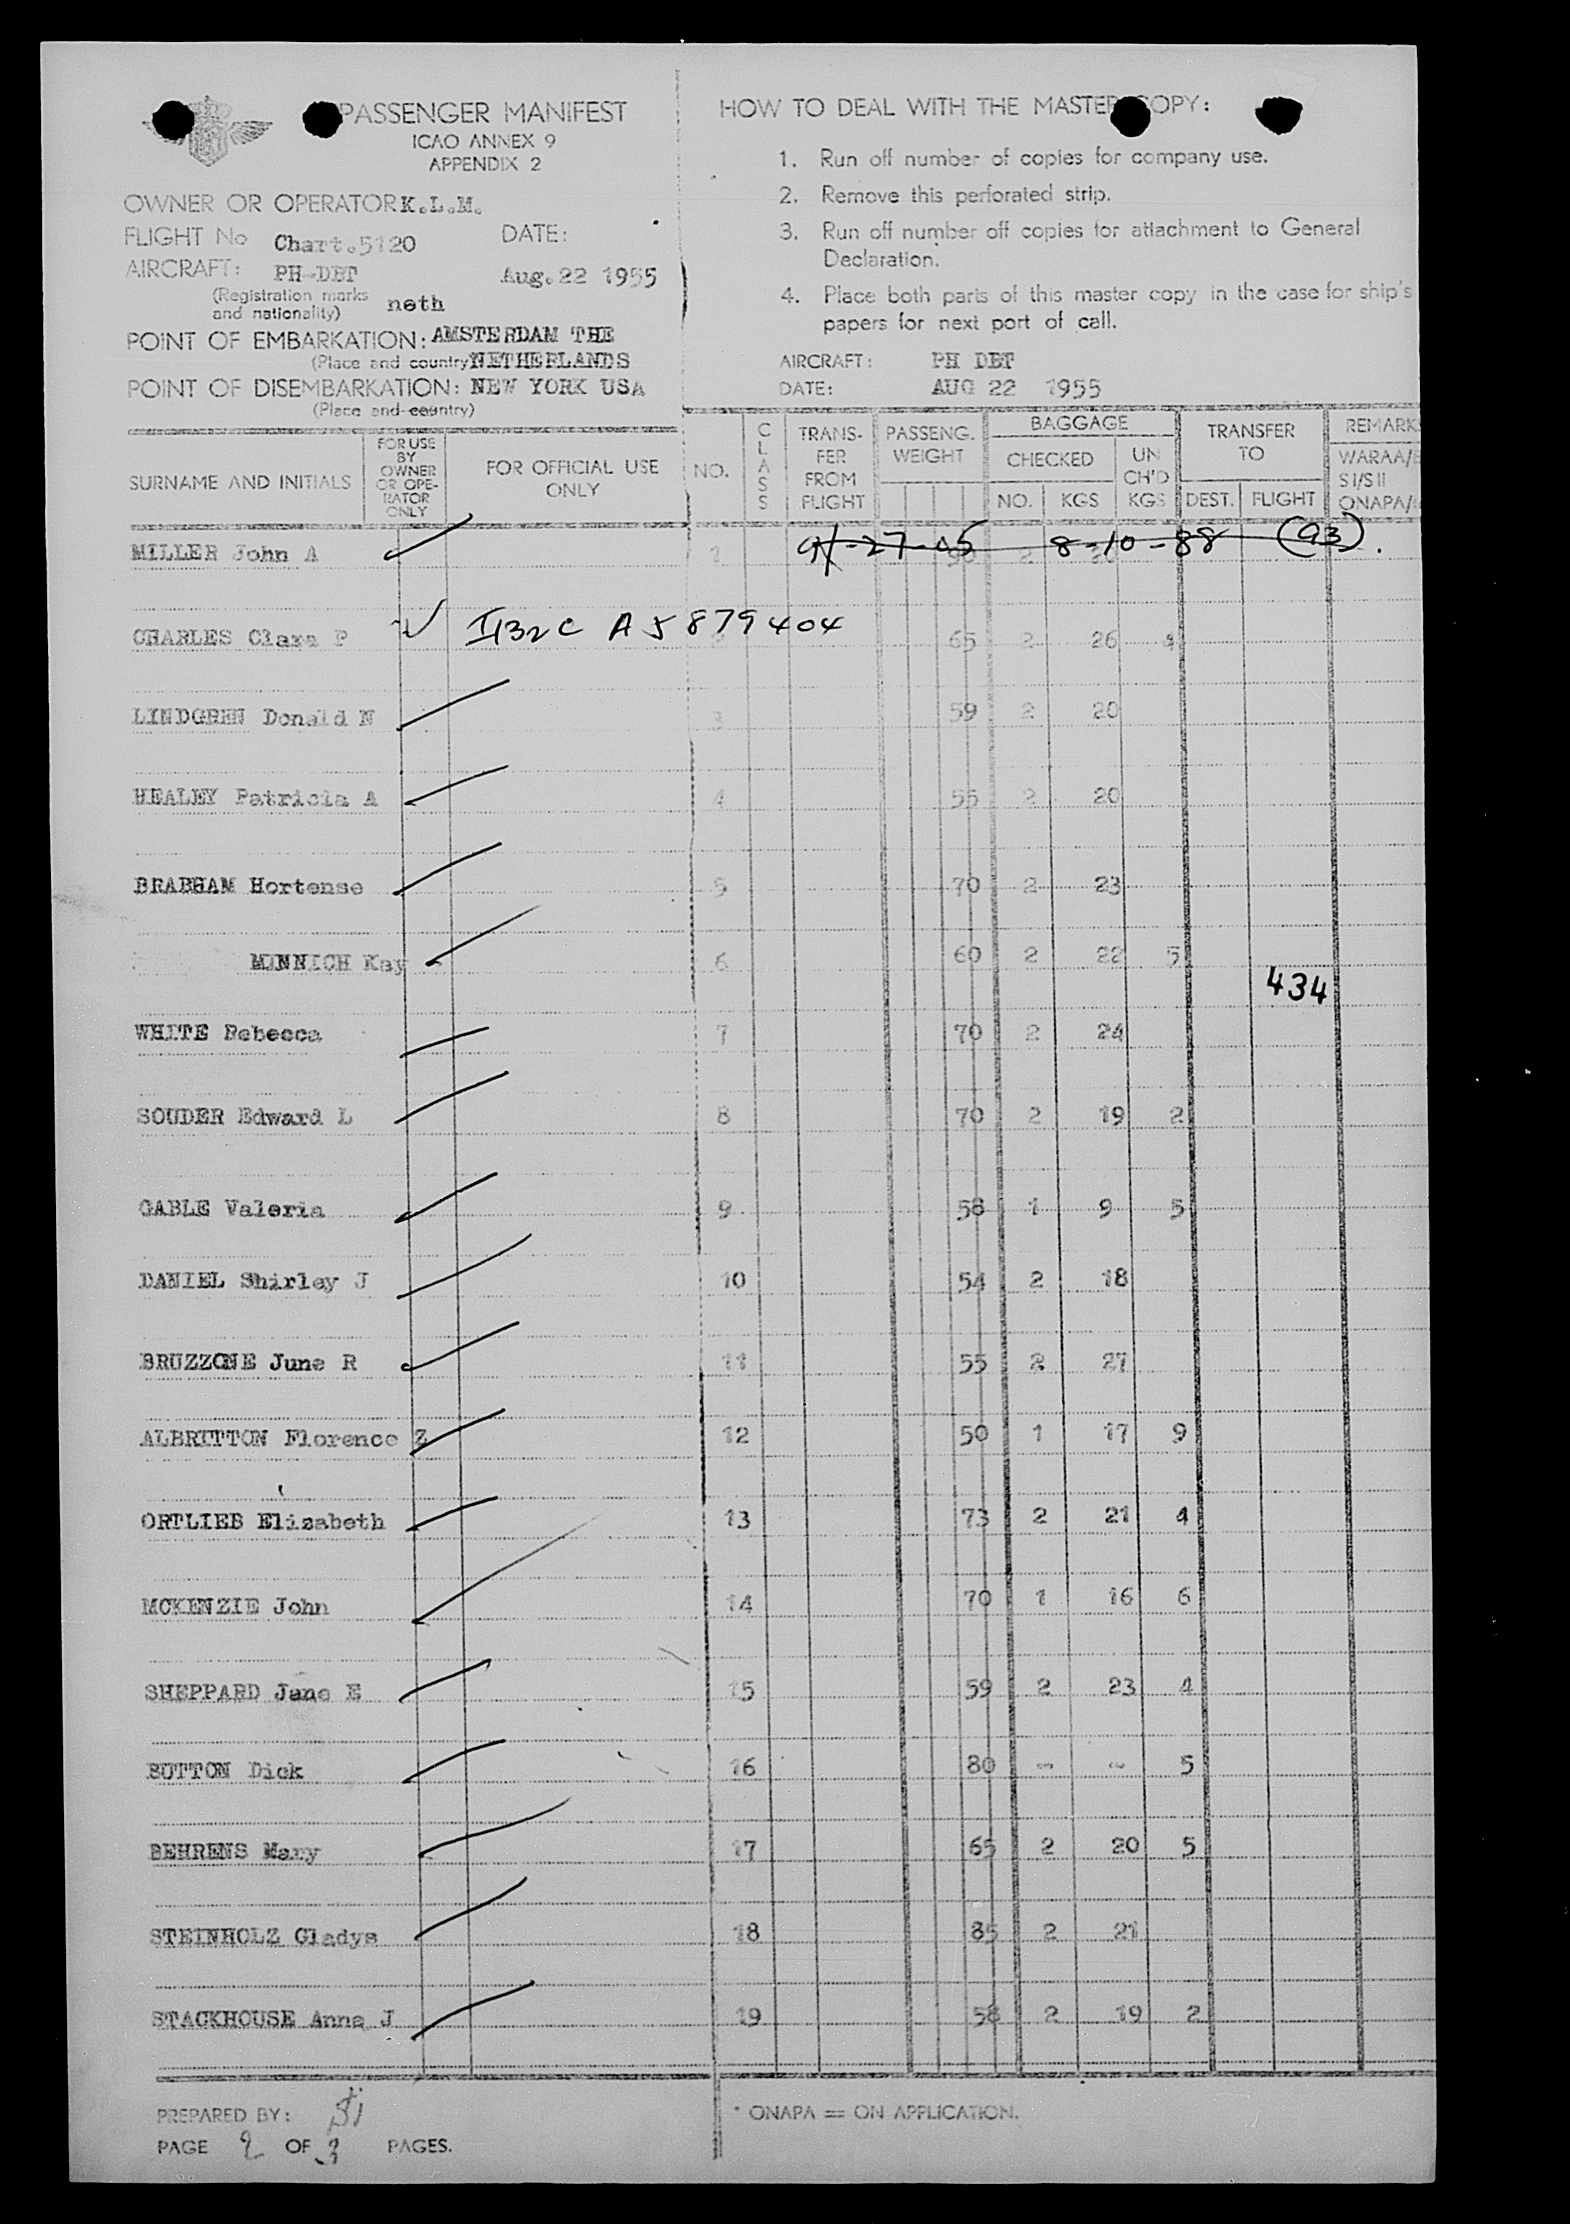 PASSENGER MANIFEST
ICAO ANNEX 9
APPENDIX 2
OWNER OR OPERATOR K.L.M.
FLIGHT No Chart.5120 DATE:
AIRCRAFT: PH-DBT Aug.22 1955
(Registration marks and nationality) neth
POINT OF EMBARKATION: AMSTERDAM THE
(Place and country) NETHERLANDS
POINT OF DISEMBARKATION: NEW YORK USA
(Place and country)
HOW TO DEAL WITH THE MASTER COPY:
1. Run off number of copies for company use.
2. Remove this perforated strip.
3. Run off number off copies for attachment to General
Declaration.
4. Place both parts of this master copy in the case for ship's
papers for next port of call.
AIRCRAFT: PH DBT
DATE: AUG 22 1955
SURNAME AND INITIALS
FOR USE BY OWNER OR OPE-RATOR ONLY
FOR OFFICIAL USE ONLY
NO.
CLASS
TRANS-FER FROM FLIGHT
PASSENG. WEIGHT
BAGGAGE
CHECKED
NO. KGS
UN CH'D KGS
TRANSFER TO
DEST. FLIGHT
REMARK
WARAA/
S I/S II
ONAPA/
MILLER John A 1 2 8-10-88 (93).
CHARLES Clara P A5879404 65 2 26
LINDGREN Donald N 3 59 2 20
HEALEY Patricia A 4 55 2 20
BRABHAM Hortense 5 70 2 23
MINNICH Kay 6 60 2 22 5
434
WHITE Rebecca 7 70 2 24
SOUDER Edward L 8 70 2 19 2
GABLE Valeria 9 58 1 9 5
DANIEL Shirley J 10 54 2 18
BRUZZONE June R 11 55 2 27
ALBRITTON Florence Z 12 50 1 17 9
ORTLIEB Elizabeth 13 73 2 21 4
MCKENZIE John 14 70 1 16 6
SHEPPARD Jane E 15 59 2 23 4
BUTTON Dick 16 80 - - 5
BEHRENS Mary 17 65 2 20 5
STEINHOLZ Gladys 18 85 2 21
STACKHOUSE Anna J 19 58 2 19 2
PREPARED BY:
PAGE 2 OF 3 PAGES.
* ONAPA = ON APPLICATION.